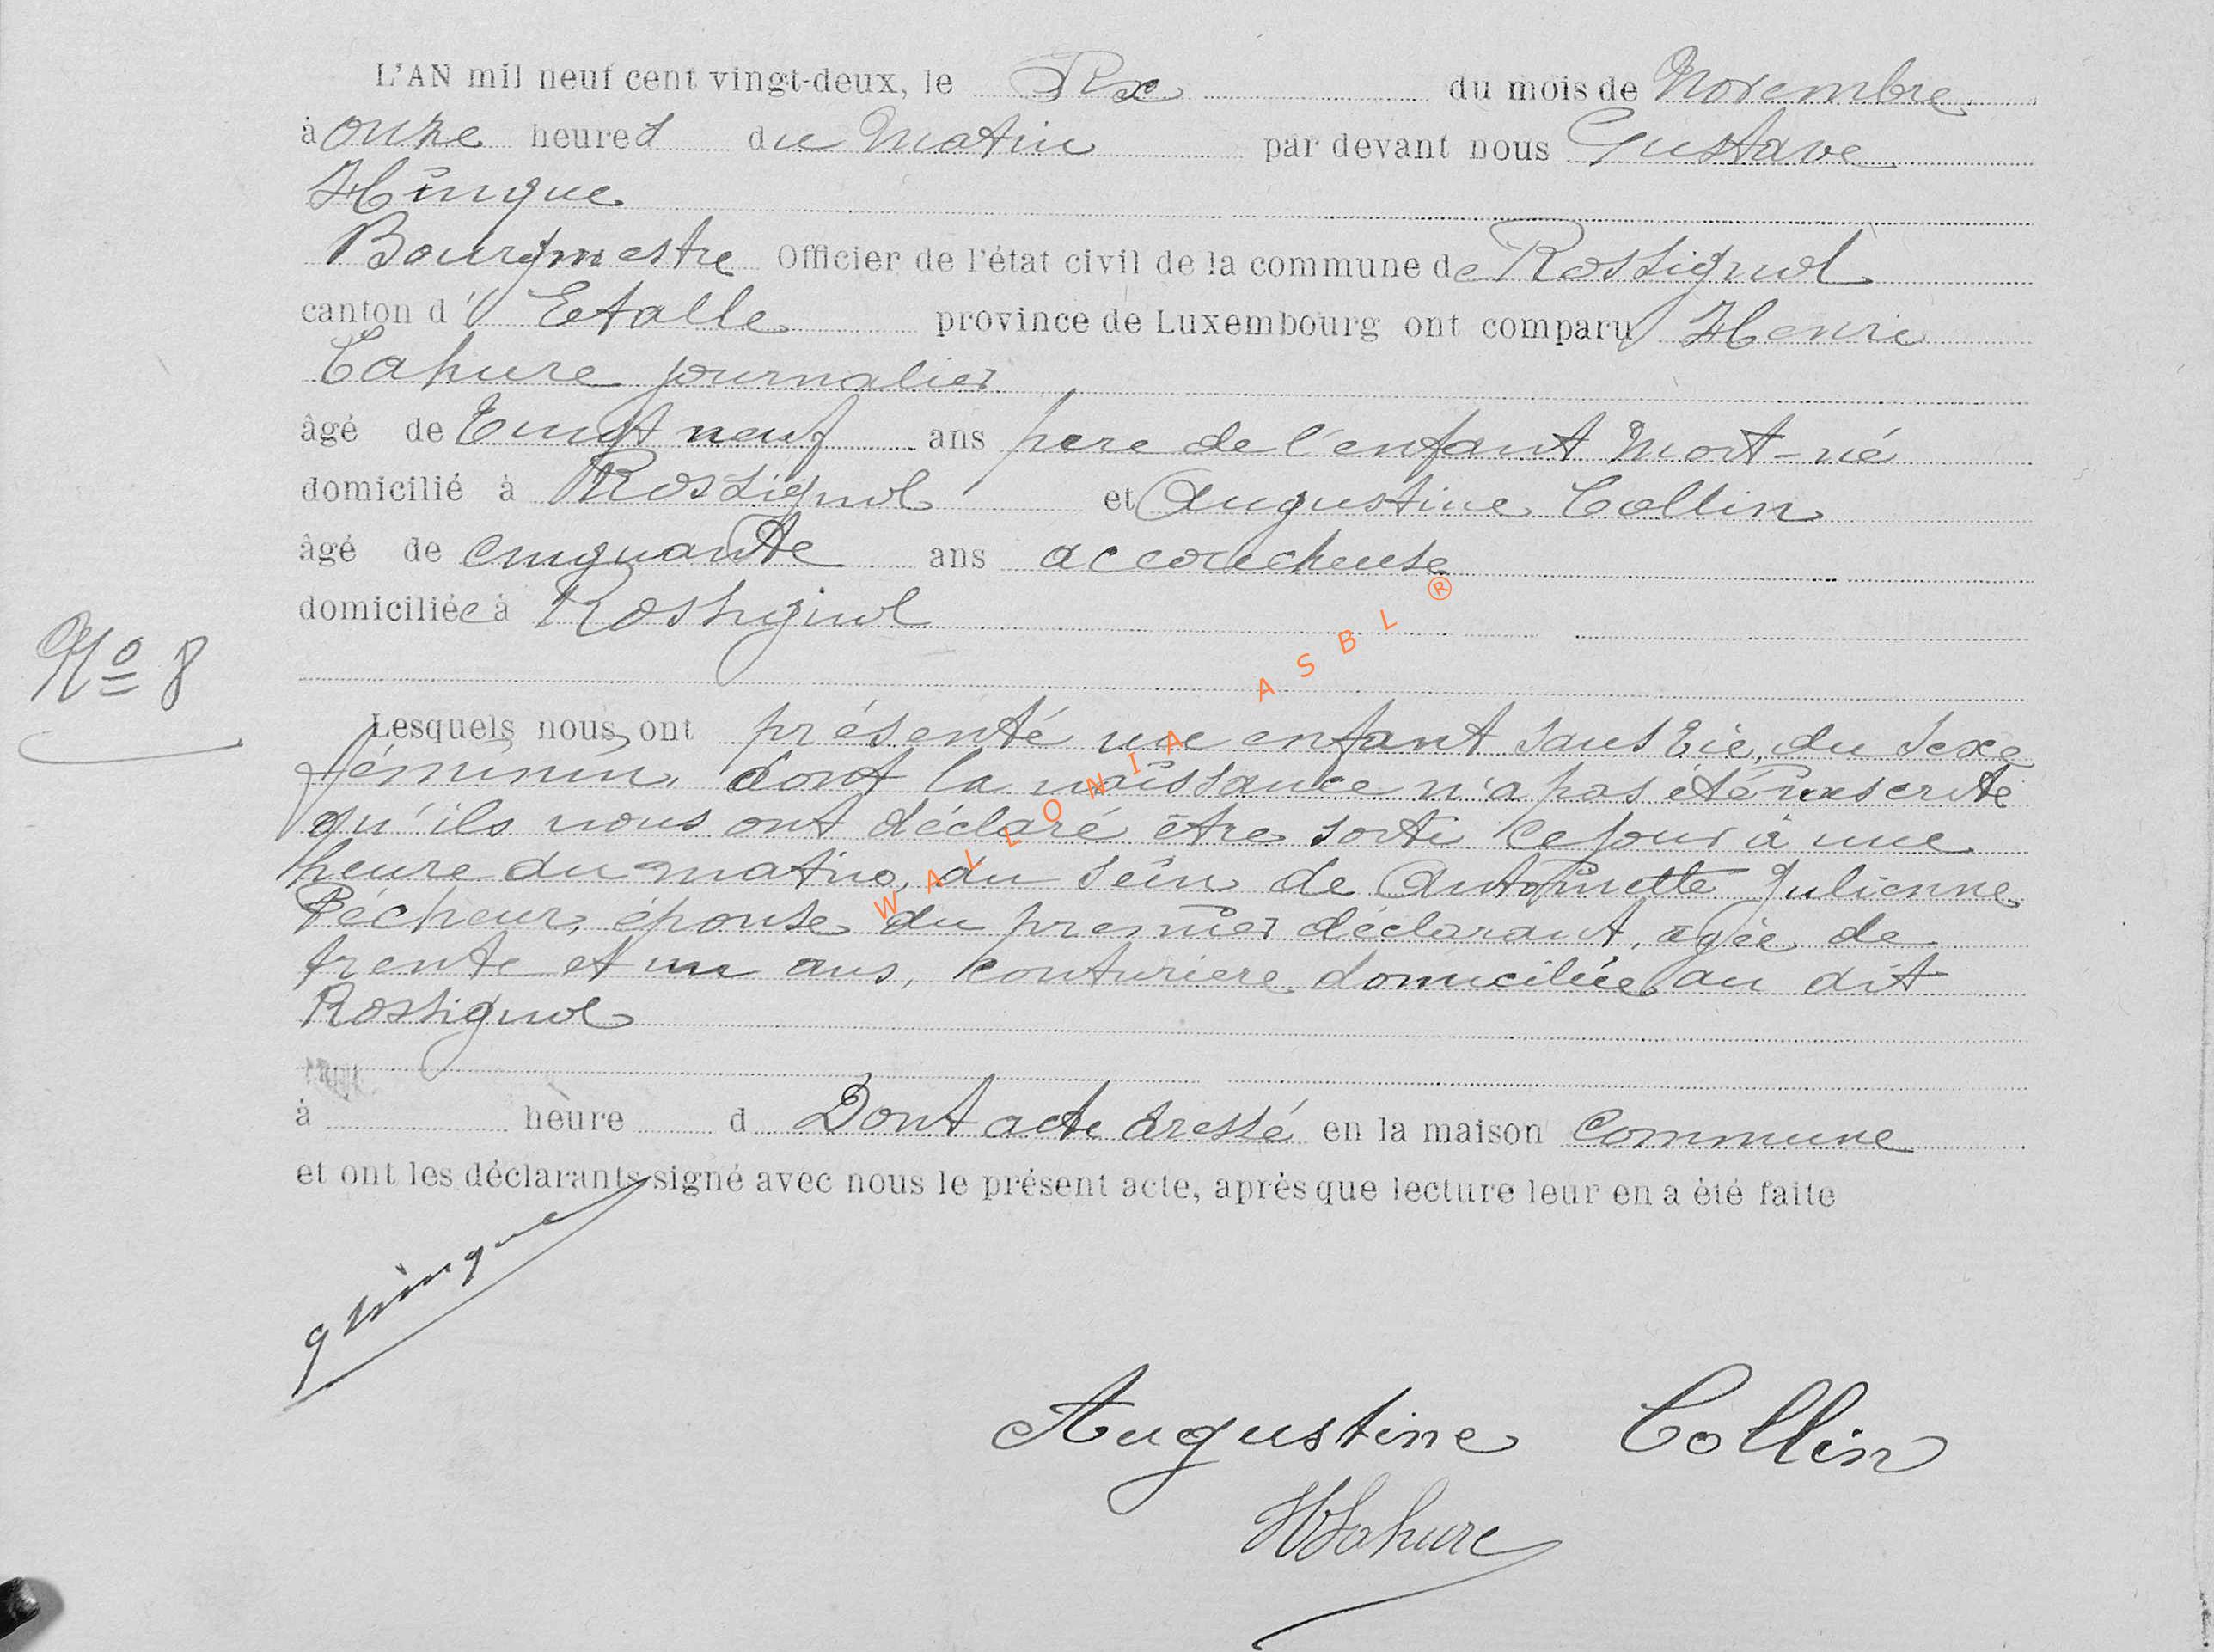 L'AN mil neuf cent vingt-deux, le du mois de Novembre
à onze heures du Matin par devant nous Gustave
Hinque
Bourgmestre Officier de l'état civil de la commune de Rossignol
canton d' Etalle province de Luxembourg ont comparu Henri
Cahure journalier
âgé de Vingt neuf ans père de l'enfant Mort-né
domicilié à Rossignol et Augustine Collin
âgé de cinquante ans accoucheuse
domiciliée à Rossignol
No 8
Lesquels nous ont présenté une enfant sans vie, du sexe
féminin, dont la naissance n'a pas été inscrite
qu'ils nous ont déclaré être sorti ce jour à une
heure du matin, du sein de Antoinette Julienne
Pécheur, épouse du premier déclarant, agée de
trente et un ans, couturière domiciliée au dit
Rossignol
à heure d Dont acte dressé en la maison Commune
et ont les déclarants signé avec nous le présent acte, après que lecture leur en a été faite
G Hinque
Augustine Collin
WALLONIA ASBL ®